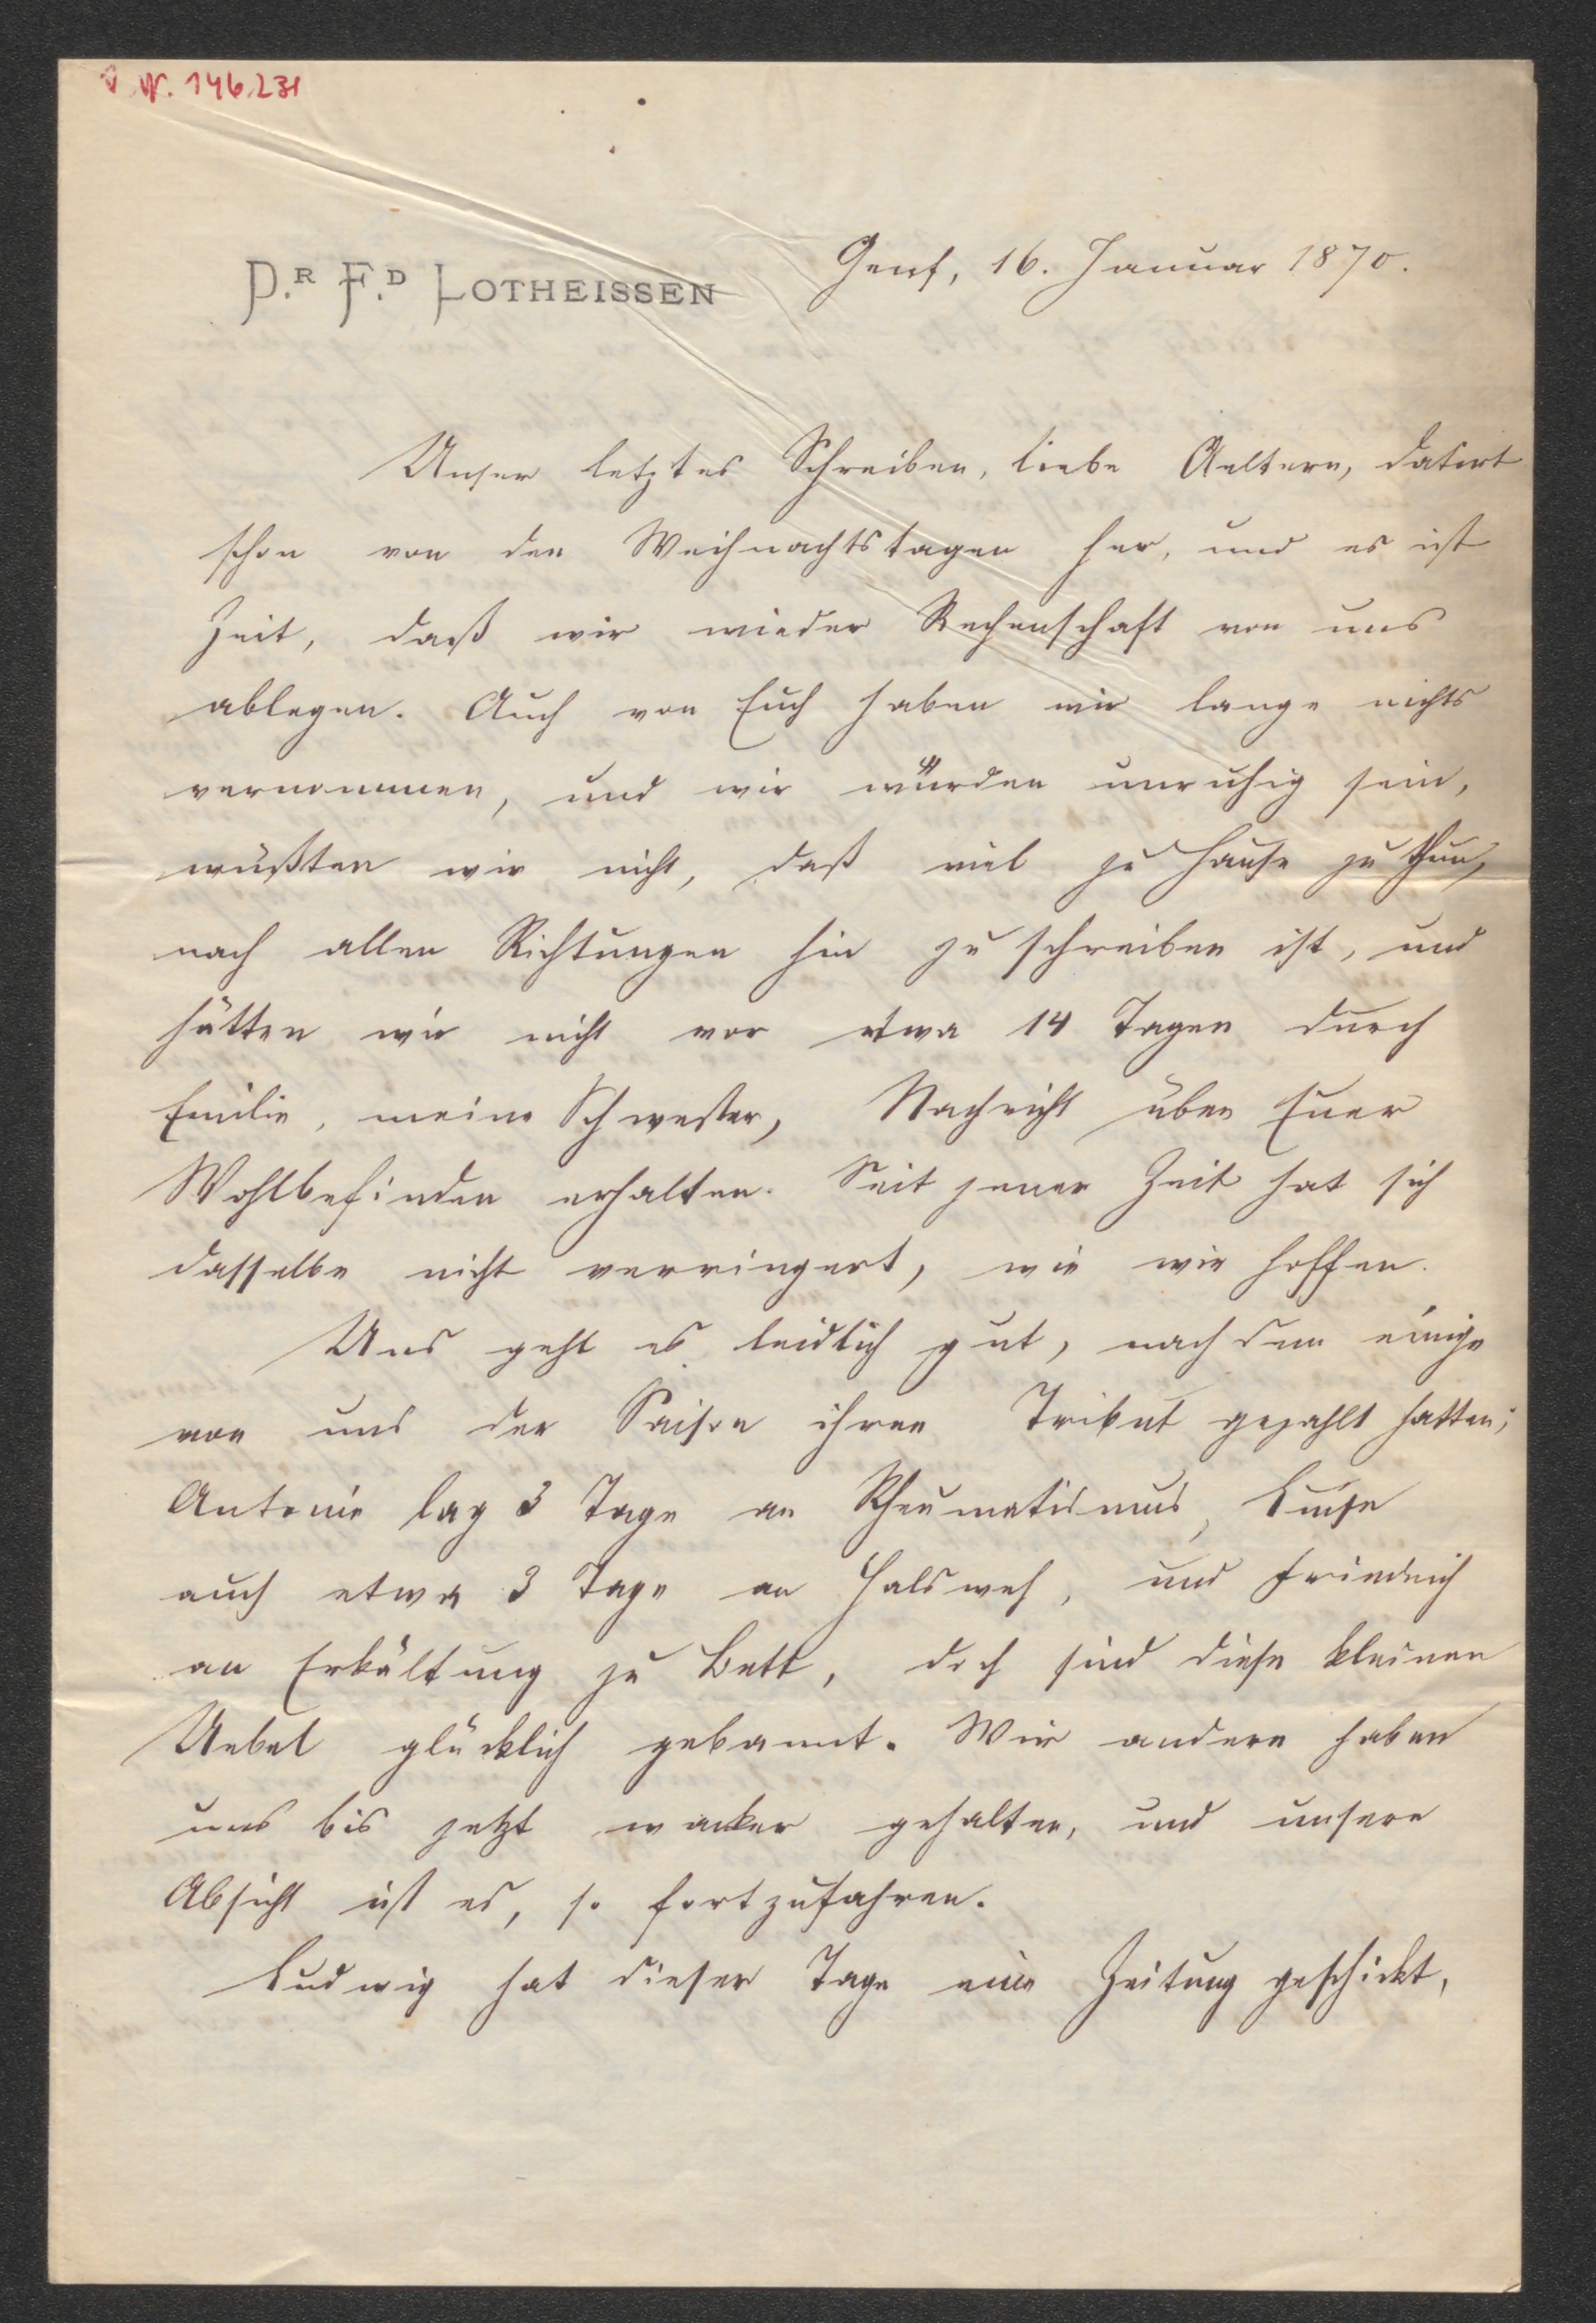 J. N. 146.231
Dr. Fd. LOTHEISSEN
Genf, 16. Januar 1870.
Unser letztes Schreiben, liebe Aeltern, datirt
schon von den Weihnachtstagen her, und es ist
Zeit, daß wir wieder Rechenschaft von uns
ablegen. Auch von Euch haben wir lange nichts
vernommen, und wir würden unruhig sein,
wüßten wir nicht, daß viel zu Hause zu thun,
nach allen Richtungen hin zu schreiben ist, und
hätten wir nicht vor etwa 14 Tagen durch
Emilie, meine Schwester, Nachricht über Euer
Wohlbefinden erhalten. Seit jener Zeit hat sich
dasselbe nicht verringert, wie wir hoffen.
Uns geht es leidlich gut, nachdem einige
von uns der Saison ihren Tribut gezahlt hatten;
Antonie lag 3 Tage an Rheumatismus, Luise
auch etwa 3 Tage an Halsweh, und Friedrich
an Erkältung zu Bett, doch sind diese kleinen
Uebel glücklich gebannt. Wir andern haben
uns bis jetzt wacker gehalten, und unsere
Absicht ist es, so fortzufahren.
Ludwig hat dieser Tage eine Zeitung geschickt,